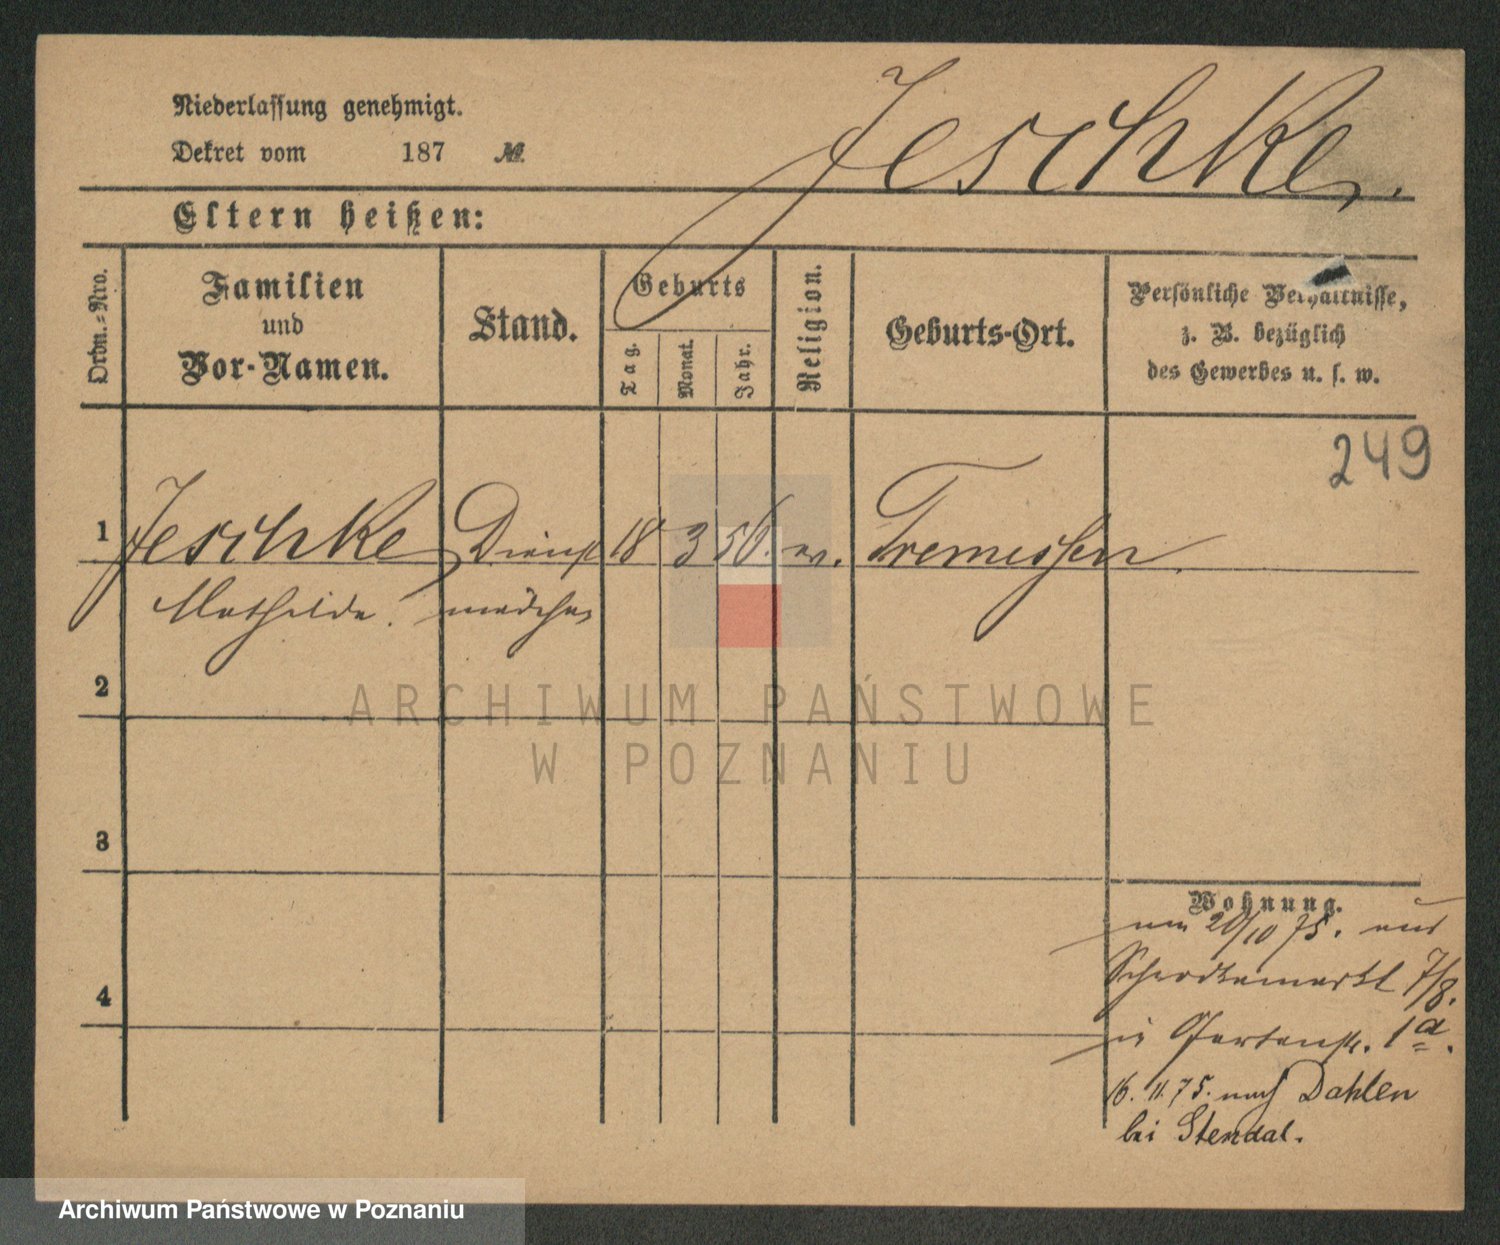 Niederlassung genehmigt.
Dekret vom 187 №
Jeschke.
Eltern heißen:
Ordn.-Nro.
Familien
und
Vor-Namen.
Stand.
Geburts
Tag.
Monat.
Jahr.
Religion.
Geburts-Ort.
Persönliche Verhältnisse,
z. B. bezüglich
des Gewerbes u. s. w.
249
1 Jeschke Dienst 18 3 56. ev. Tremessen
Mathilde. mädchen
2
ARCHIWUM PAŃSTWOWE
W POZNANIU
3
Wohnung.
20/10 75. aus
7/8.
4
in Gartenstr. 1a.
16. 11. 75. nach Dahlen
bei Stendal.
Archiwum Państwowe w Poznaniu